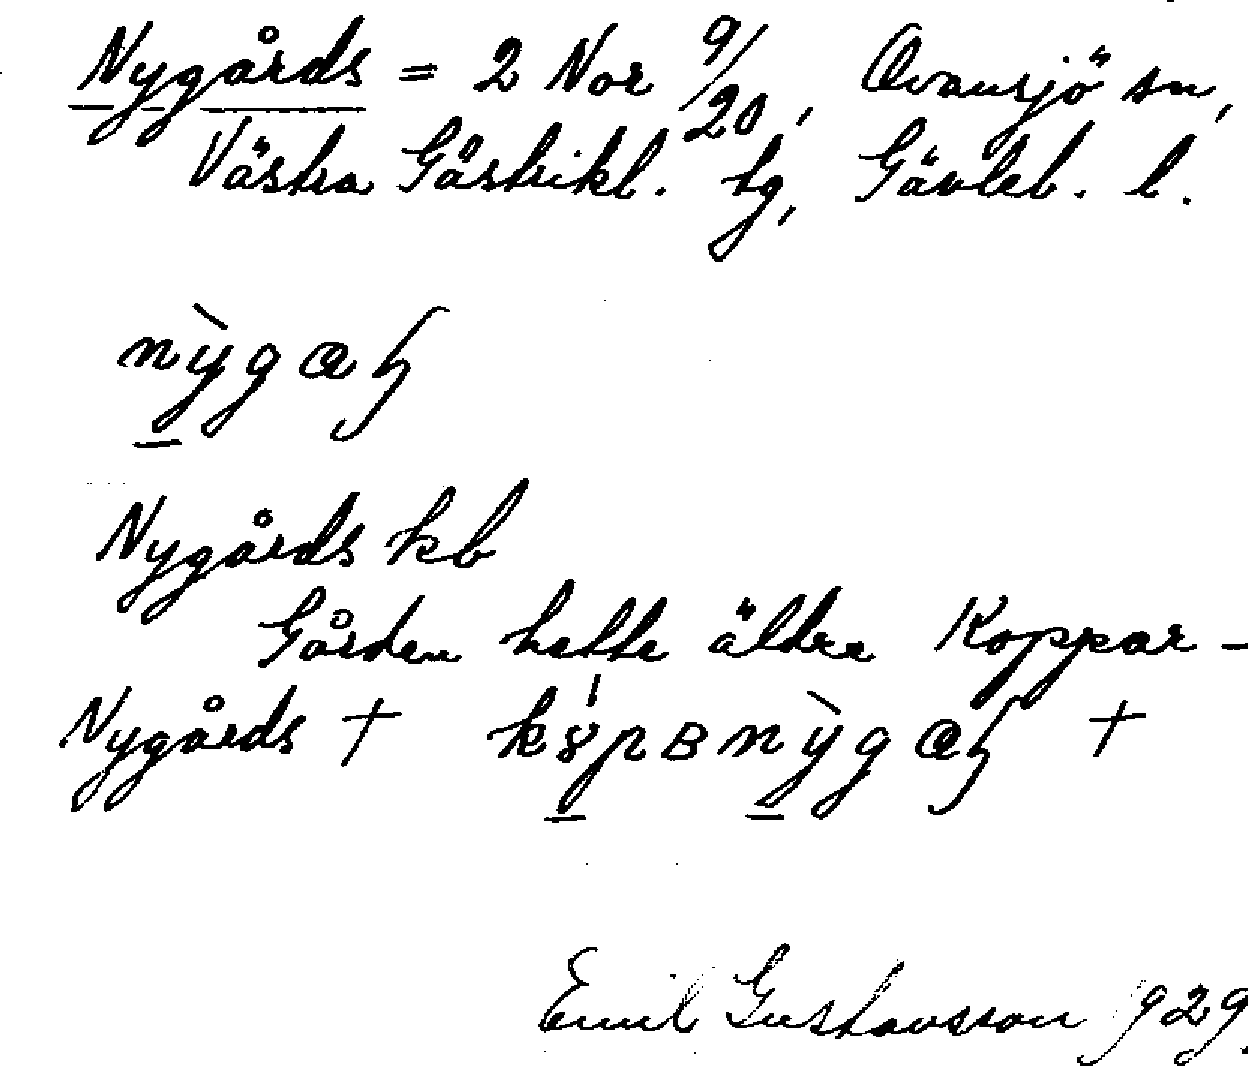 Nygårds = 2 Nor 9/20, Ovansjö sn,
Västra Gästrikl. hg, Gävleb. l.
Nygårds kb
Gården hette äldre Koppar-
Nygårds +
+
Emil Gustavsson 1929.